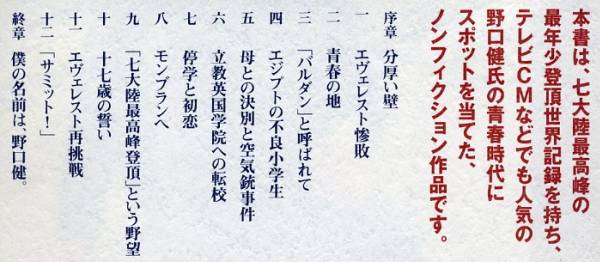 本書は、七大陸最高峰の
最年少登頂世界記録を持ち、
テレビCMなどでも人気の
野口健氏の青春時代に
スポットを当てた、
ノンフィクション作品です。
序章 分厚い壁
一 エヴェレスト惨敗
二 青春の地
三 「バルダン」と呼ばれて
四 エジプトの不良小学生
五 母との決別と空気銃事件
六 立教英国学院への転校
七 停学と初恋
八 モンブランへ
九 「七大陸最高峰登頂」という野望
十 十七歳の誓い
十一 エヴェレスト再挑戦
十二 「サミット!」
終章 僕の名前は、野口健。